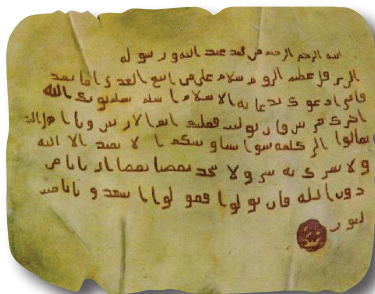 بسم الله الرحمن الرحيم من محمد عبد الله ورسوله
الى هرقل عظيم الروم سلام على من اتبع الهدى اما بعد
فانى ادعوك بدعاية الاسلام اسلم تسلم يوتك الله
اجرك مرتين فان توليت فعليك اثم الاريسين ويا اهل الكتب
تعالوا الى كلمة سوا بيننا وبينكم الا نعبد الا الله
ولا نشرك به شيا ولا يتخذ بعضنا بعضا اربابا من
دون الله فان تولوا فقولوا اشهدوا بانا مسـ
لمون